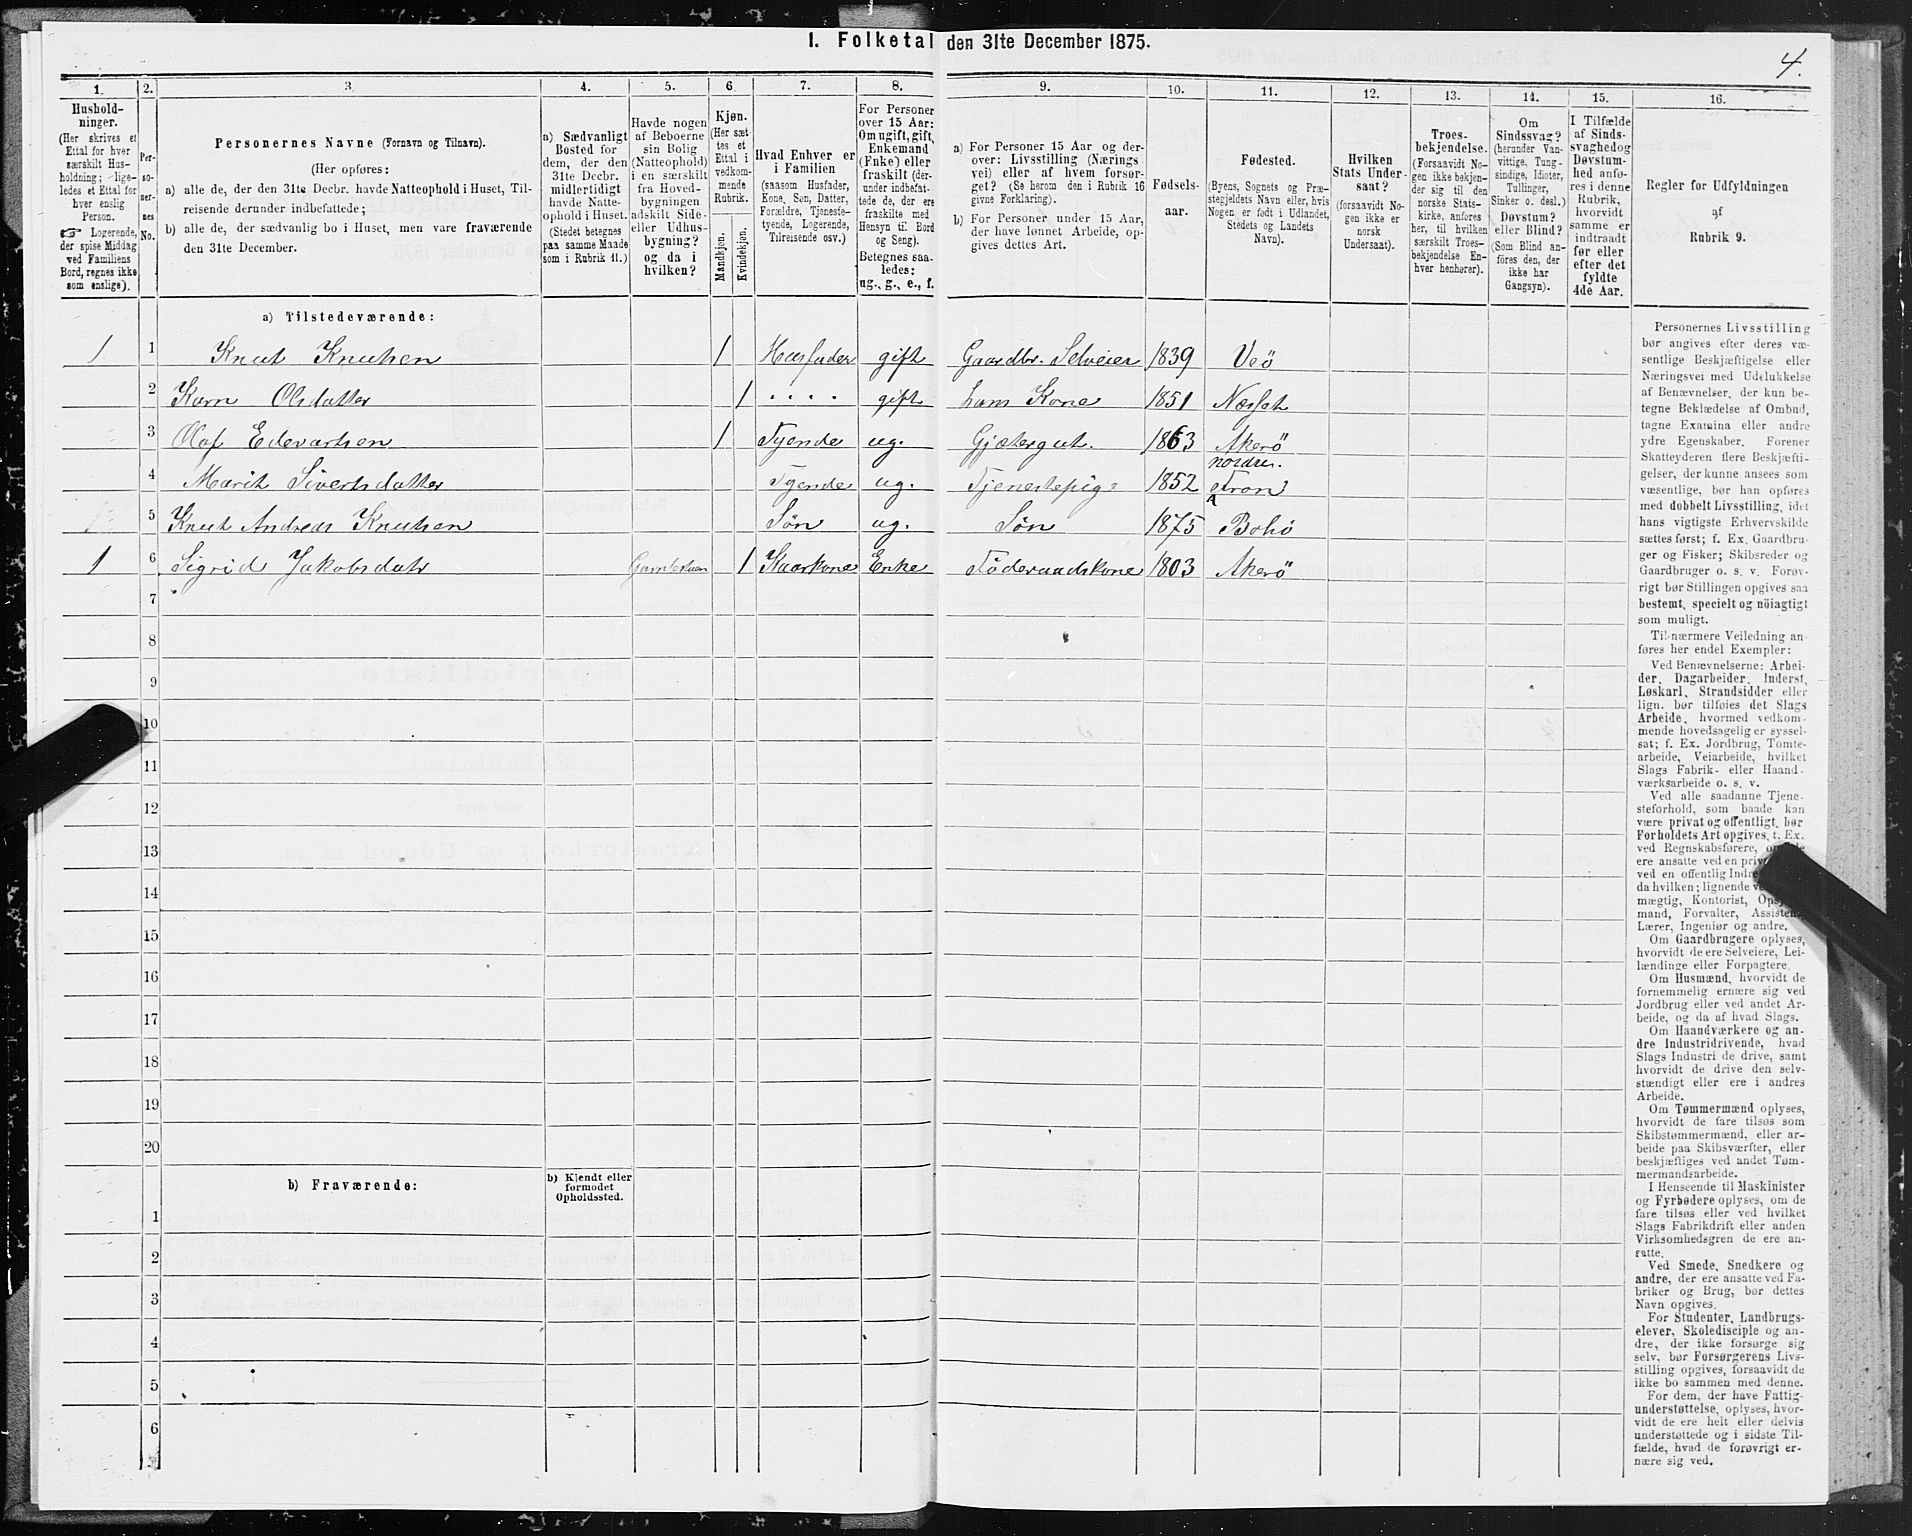 1. Folketal den 31te December 1875.
4.
1. 2. 3. 4. 5. 6. 7. 8. 9. 10. 11. 12. 13. 14. 15. 16.
Hushold-
ninger.
(Her skrives et
Ettal for hver
særskilt Hus-
holdning; lige-
ledes et Ettal for
hver enslig
Person.
☞ Logerende,
der spise Middag
ved Familiens
Bord, regnes ikke
som enslige).
Per-
so-
ner-
nes
No.
Personernes Navne (Fornavn og Tilnavn).
(Her opføres:
a) alle de, der den 31te Decbr. havde Natteophold i Huset, Til-
reisende derunder indbefattede;
b) alle de, der sædvanlig bo i Huset, men vare fraværende
den 31te December.
a) Sædvanligt
Bosted for
dem, der den
31te Decbr.
midlertidigt
havde Natte-
ophold i Huset.
(Stedet betegnes
paa samme Maade
som i Rubrik 11.)
Havde nogen
af Beboerne
sin Bolig
(Natteophold)
i en særskilt
fra Hoved-
bygningen
adskilt Side-
eller Udhus-
bygning?
og da i
hvilken?
Kjøn.
(Her sæt-
tes et
Ettal i
vedkom-
mende
Rubrik.
Mandkjøn.
Kvindekjøn.
Hvad Enhver er
i Familien
(saasom Husfader,
Kone, Søn, Datter,
Forældre, Tjeneste-
tyende, Logerende,
Tilreisende osv.)
For Personer
over 15 Aar:
Om ugift, gift,
Enkemand
(Enke) eller
fraskilt (der-
under indbefat-
tede de, der ere
fraskilte med
Hensyn til Bord
og Seng).
Betegnes saa-
ledes:
ug., g., e., f.
a) For Personer 15 Aar og der-
over: Livsstilling (Nærings
vei) eller af hvem forsør-
get? (Se herom den i Rubrik 16
givne Forklaring).
b) For Personer under 15 Aar,
der have lønnet Arbeide, op-
gives dettes Art.
Fødsels-
aar.
Fødested.
(Byens, Sognets og Præ-
stegjeldets Navn eller, hvis
Nogen er født i Udlandet,
Stedets og Landets
Navn).
Hvilken
Stats Under-
saat?
(forsaavidt No-
gen ikke er
norsk
Undersaat).
Troes-
bekjendelse.
(Forsaavidt No-
gen ikke bekjen-
der sig til den
norske Stats-
kirke, anføres
her, til hvilken
særskilt Troes-
bekjendelse En-
hver henhører).
Om
Sindssvag?
(herunder Van-
vittige, Tung-
sindige, Idioter,
Tullinger,
Sinker o. desl.)
Døvstum?
eller Blind?
(Som Blind an-
føres den, der
ikke har
Gangsyn).
I Tilfælde
af Sinds-
svaghed og
Døvstum-
hed anfø-
res i denne
Rubrik,
hvorvidt
samme er
indtraadt
før eller
efter det
fyldte
4de Aar.
Regler for Udfyldningen
af
Rubrik 9.
a) Tilstedeværende:
1 1 Knut Knutsen 1 Husfader gift Gaardbr. Selveier 1839 Veö
2 Karn Olsdatter 1 " " " " gift hans Kone 1851 Næsset
3 Olaf Edevartsen 1 Tyende ug. Gjætergut. 1863 Akerö
4 Marit Sivertsdatter Tyende ug. Tjenestepige 1852 nordre Fron
5 Knut Andreas Knutsen Søn ug. Søn 1875 Bolsö
1 6 Sigrid Jakobsdatr 1 Enke Föderaadskone 1803 Akerö
7
8
9
10
11
12
13
14
15
16
17
18
19
20
b) Fraværende:
b) Kjendt eller
formodet
Opholdssted.
1
2
3
4
5
6
Personernes Livsstilling
bør angives efter deres væ-
sentlige Beskjæftigelse eller
Næringsvei med Udelukkelse
af Benævnelser, der kun be-
tegne Beklædelse af Ombud,
tagne Examina eller andre
ydre Egenskaber. Forener
Skatteyderen flere Beskjæfti-
gelser, der kunne ansees som
væsentlige, bør han opføres
med dobbelt Livsstilling, idet
hans vigtigste Erhvervskilde
sættes først; f. Ex. Gaardbru-
ger og Fisker; Skibsreder og
Gaardbruger o. s. v. Forøv-
rigt bør Stillingen opgives saa
bestemt, specielt og nöiagtigt
som muligt.
Til nærmere Veiledning an-
føres her endel Exempler:
Ved Benævnelserne: Arbei-
der, Dagarbeider, Inderst,
Løskarl, Strandsidder eller
lign. bør tilføies det Slags
Arbeide, hvormed vedkom-
mende hovedsagelig er syssel-
sat; f. Ex. Jordbrug, Tomte-
arbeide, Veiarbeide, hvilket
Slags Fabrik- eller Haand-
værksarbeide o. s. v.
Ved alle saadanne Tjene-
steforhold, som baade kan
være privat og offentligt, bør
Forholdets Art opgives, t. Ex.
ved Regnskabsførere,
ere ansatte ved en
ved en offentlig
da hvilken; lignende
mægtig, Kontorist,
mand, Forvalter,
Lærer, Ingeniør og andre.
Om Gaardbrugere oplyses,
hvorvidt de ere Selveiere, Lei-
lændinge eller Forpagtere.
Om Husmænd, hvorvidt de
fornemmelig ernære sig ved
Jordbrug eller ved andet Ar-
beide, og da af hvad Slags.
Om Haandværkere og an-
dre Industridrivende, hvad
Slags Industri de drive, samt
hvorvidt de drive den selv-
stændigt eller ere i andres
Arbeide.
Om Tømmermænd oplyses,
hvorvidt de fare tilsøs som
Skibstømmermænd, eller ar-
beide paa Skibsværfter, eller
beskjæftiges ved andet Tøm-
mermandsarbeide.
I Henseende til Maskinister
og Fyrbødere oplyses, om de
fare tilsøs eller ved hvilket
Slags Fabrikdrift eller anden
Virksomhedsgren de ere an-
satte.
Ved Smede, Snedkere og
andre, der ere ansatte ved Fa-
briker og Brug, bør dettes
Navn opgives.
For Studenter, Landbrugs-
elever, Skoledisciple og an-
dre, der ikke forsørge sig
selv, bør Forsørgerens Livs-
stilling opgives, forsaavidt de
ikke bo sammen med denne.
For dem, der have Fattig-
understøttelse, oplyses, hvor-
vidt de ere helt eller delvis
understøttede og i sidste Til-
fælde, hvad de forøvrigt er-
nære sig ved.